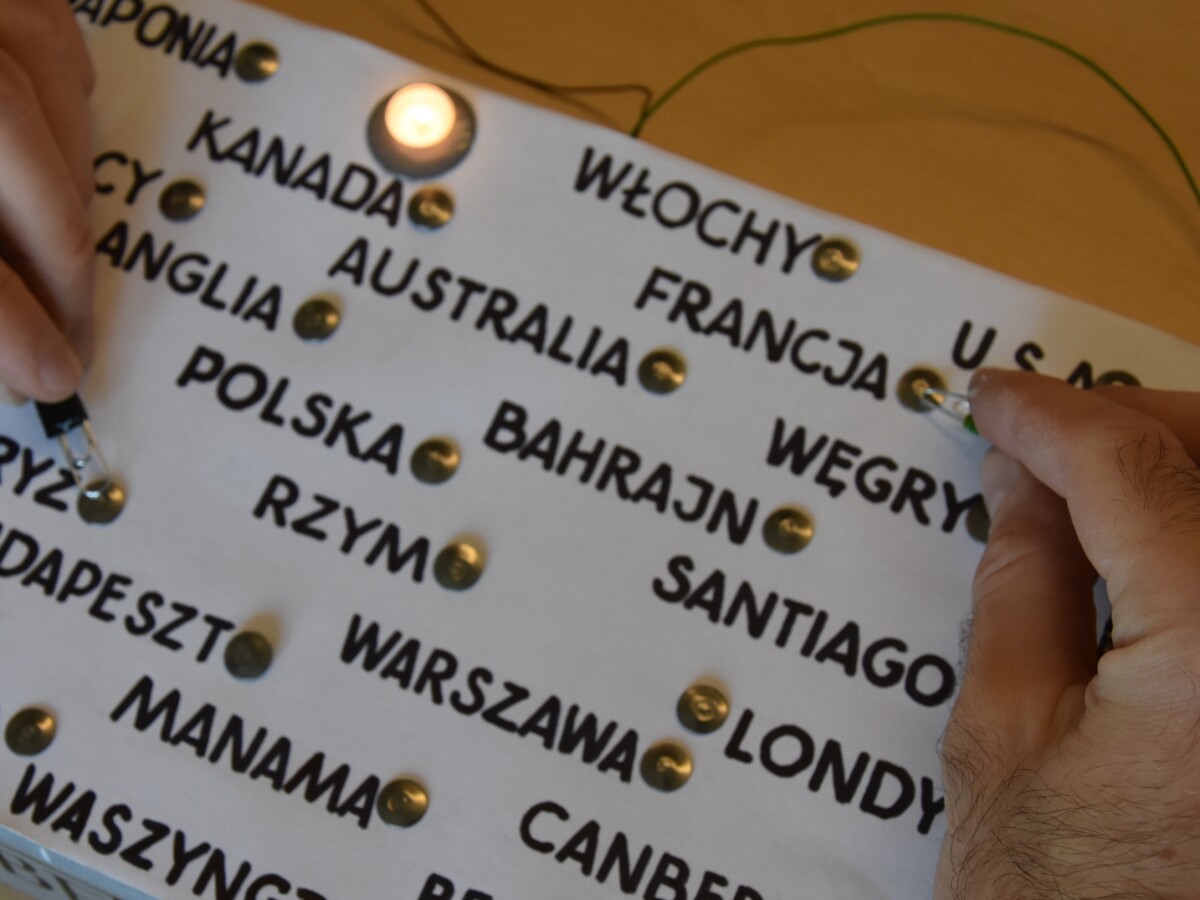 JAPONIA
KANADA
WŁOCHY
CY
ANGLIA
AUSTRALIA
FRANCJA
U.S.A
POLSKA
BAHRAJN
WĘGRY
RYŻ
RZYM
SANTIAGO
DAPESZT
WARSZAWA
LONDY
MANAMA
CANBER
WASZYNGT